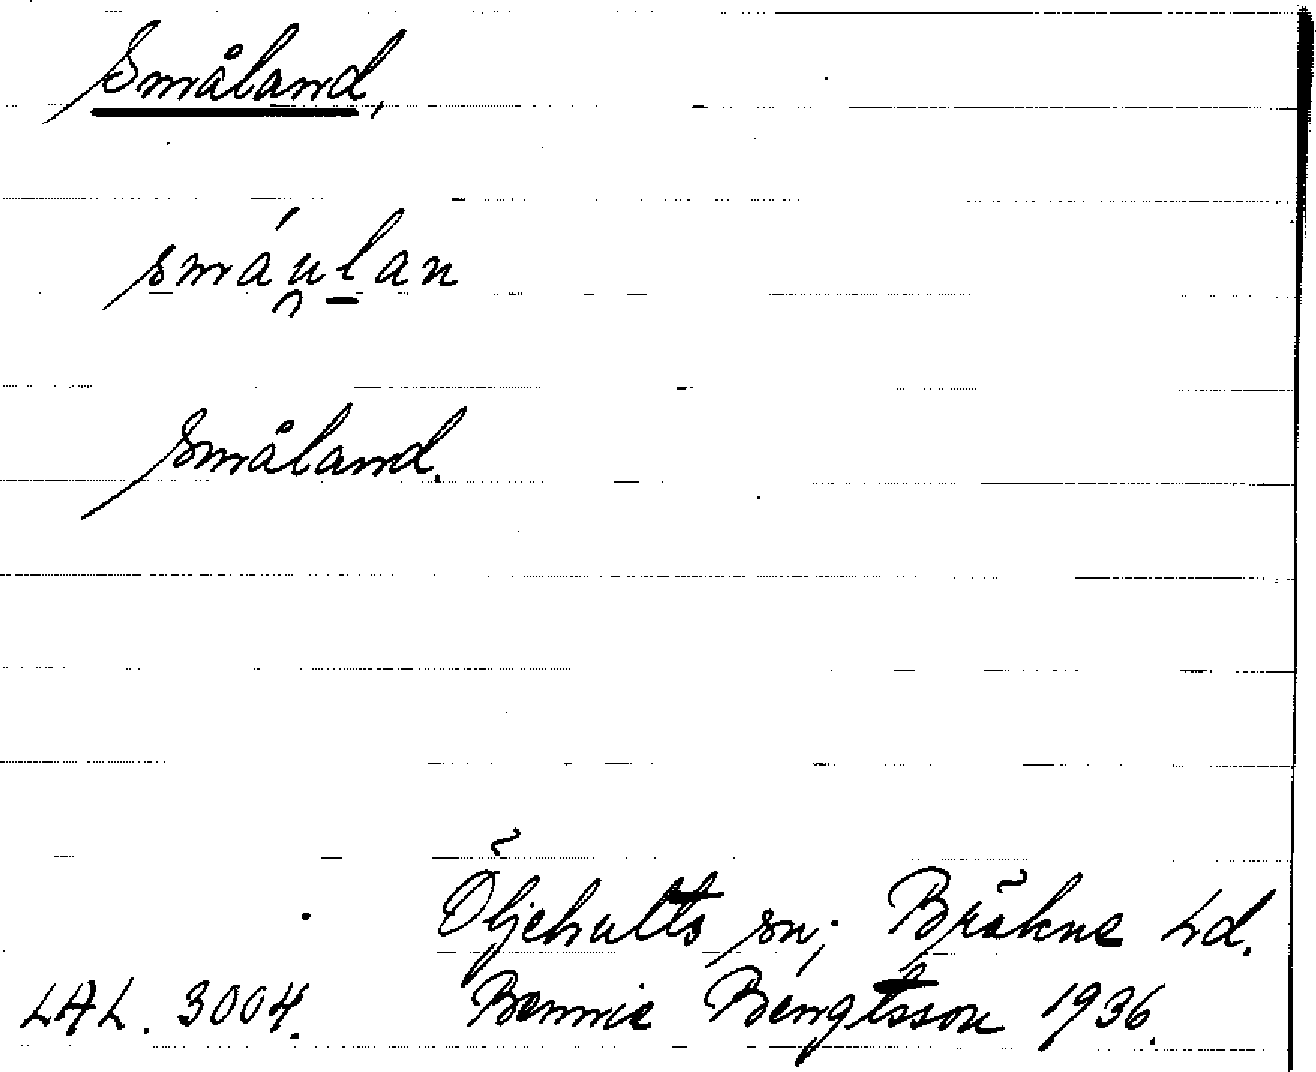 Småland,
smáu̯l̲an
Småland.
Öljehults sn; Bräkne hd.
LAL. 3004. Bennie Bengtsson 1936.